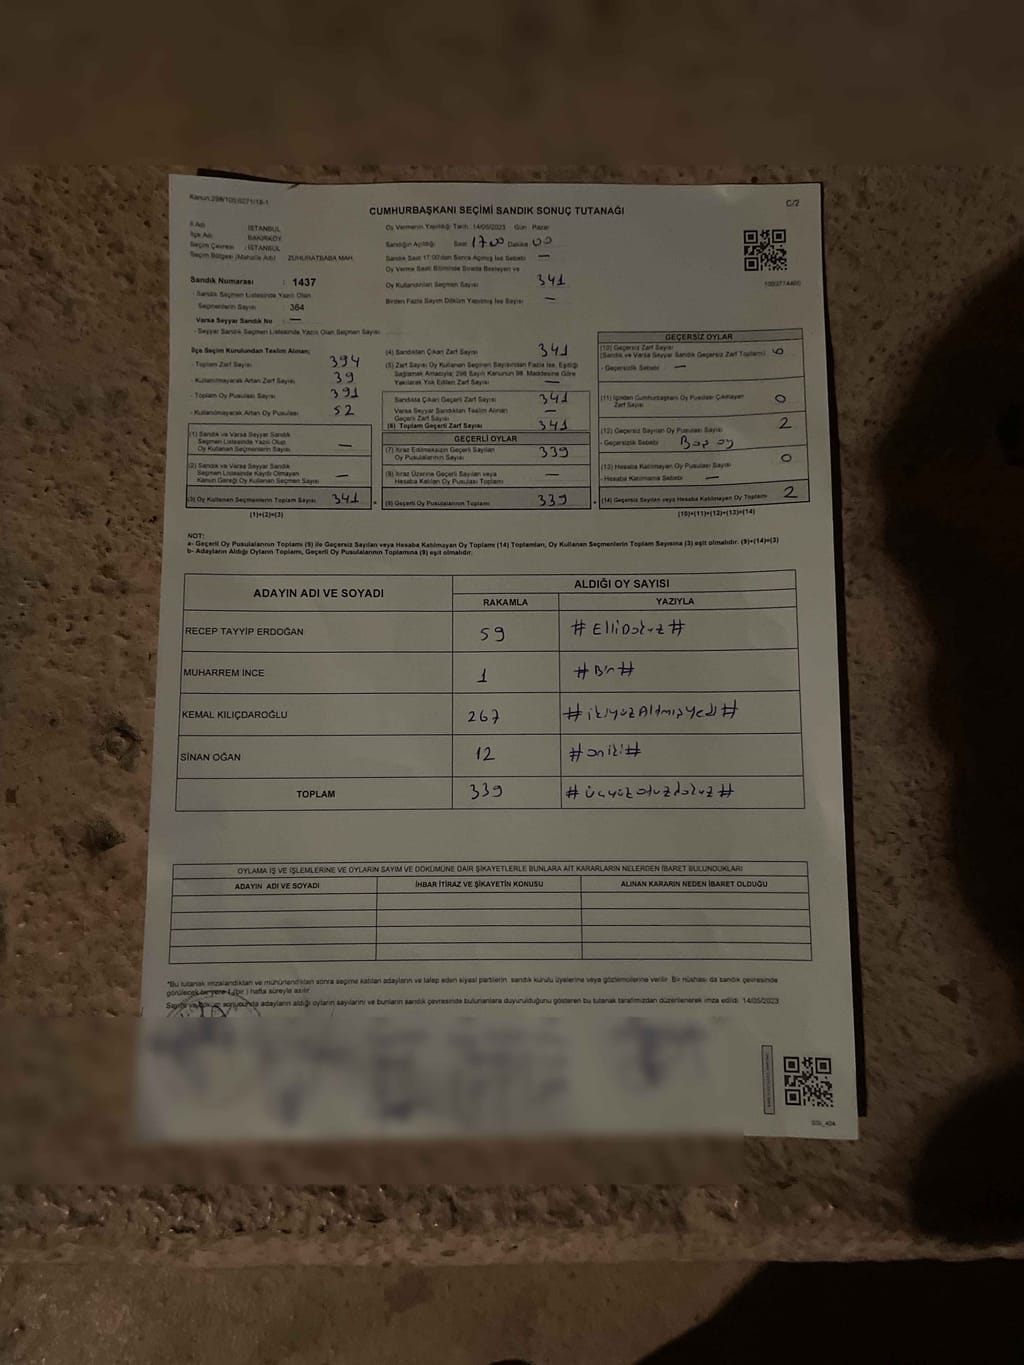 Kanun:298/105;6271/18-1
C/2
CUMHURBAŞKANI SEÇİMİ SANDIK SONUÇ TUTANAĞI
İl Adı : İSTANBUL
İlçe Adı : BAKIRKÖY
Seçim Çevresi : İSTANBUL
Seçim Bölgesi (Mahalle Adı) ZUHURATBABA MAH.
Oy Vermenin Yapıldığı Tarih 14/05/2023 Gün Pazar
Sandığın Açıldığı Saat 17:00 Dakika 00
Sandık Saat 17:00'den Sonra Açılmış İse Sebebi —
Oy Verme Saati Bitiminde Sırada Bekleyen ve
Oy Kullandırılan Seçmen Sayısı 341
Birden Fazla Sayım Döküm Yapılmış İse Sayısı —
Sandık Numarası : 1437
- Sandık Seçmen Listesinde Yazılı Olan
Seçmenlerin Sayısı : 364
Varsa Seyyar Sandık No : —
- Seyyar Sandık Seçmen Listesinde Yazılı Olan Seçmen Sayısı
İlçe Seçim Kurulundan Teslim Alınan;
- Toplam Zarf Sayısı 394
- Kullanılmayarak Artan Zarf Sayısı 39
- Toplam Oy Pusulası Sayısı 391
- Kullanılmayarak Artan Oy Pusulası 52
(1) Sandık ve Varsa Seyyar Sandık
Seçmen Listesinde Yazılı Olup
Oy Kullanan Seçmenlerin Sayısı —
(2) Sandık ve Varsa Seyyar Sandık
Seçmen Listesinde Kaydı Olmayan
Kanun Gereği Oy Kullanan Seçmen Sayısı —
(3) Oy Kullanan Seçmenlerin Toplam Sayısı 341 =
(1)+(2)=(3)
(4) Sandıktan Çıkan Zarf Sayısı 341
(5) Zarf Sayısı Oy Kullanan Seçmen Sayısından Fazla İse, Eşitliği
Sağlamak Amacıyla; 298 Sayılı Kanunun 98. Maddesine Göre
Yakılarak Yok Edilen Zarf Sayısı —
Sandıkta Çıkan Geçerli Zarf Sayısı 341
Varsa Seyyar Sandıktan Teslim Alınan
Geçerli Zarf Sayısı —
(6) Toplam Geçerli Zarf Sayısı 341
GEÇERLİ OYLAR
(7) İtiraz Edilmeksizin Geçerli Sayılan
Oy Pusulalarının Sayısı 339
(8) İtiraz Üzerine Geçerli Sayılan veya
Hesaba Katılan Oy Pusulası Toplamı —
(9) Geçerli Oy Pusulalarının Toplamı 339 +
GEÇERSİZ OYLAR
(10) Geçersiz Zarf Sayısı
(Sandık ve Varsa Seyyar Sandık Geçersiz Zarf Toplamı) 0
- Geçersizlik Sebebi —
(11) İçinden Cumhurbaşkanı Oy Pusulası Çıkmayan
Zarf Sayısı 0
(12) Geçersiz Sayılan Oy Pusulası Sayısı 2
- Geçersizlik Sebebi Boş oy
(13) Hesaba Katılmayan Oy Pusulası Sayısı 0
- Hesaba Katılmama Sebebi —
(14) Geçersiz Sayılan veya Hesaba Katılmayan Oy Toplamı 2
(10)+(11)+(12)+(13)=(14)
NOT:
a- Geçerli Oy Pusulalarının Toplamı (9) ile Geçersiz Sayılan veya Hesaba Katılmayan Oy Toplamı (14) Toplamları, Oy Kullanan Seçmenlerin Toplam Sayısına (3) eşit olmalıdır. (9)+(14)=(3)
b- Adayların Aldığı Oyların Toplamı, Geçerli Oy Pusulalarının Toplamına (9) eşit olmalıdır.
ADAYIN ADI VE SOYADI ALDIĞI OY SAYISI
RAKAMLA YAZIYLA
RECEP TAYYİP ERDOĞAN 59 # ElliDokuz #
MUHARREM İNCE 1 # Bir #
KEMAL KILIÇDAROĞLU 267 # ikiyüzAltmışyedi #
SİNAN OĞAN 12 # oniki #
TOPLAM 339 # üçyüzotuzdokuz #
OYLAMA İŞ VE İŞLEMLERİNE VE OYLARIN SAYIM VE DÖKÜMÜNE DAİR ŞİKAYETLERLE BUNLARA AİT KARARLARIN NELERDEN İBARET BULUNDUKLARI
ADAYIN ADI VE SOYADI İHBAR İTİRAZ VE ŞİKAYETİN KONUSU ALINAN KARARIN NEDEN İBARET OLDUĞU
*Bu tutanak imzalandıktan ve mühürlendikten sonra seçime katılan adayların ve talep eden siyasi partilerin sandık kurulu üyelerine veya gözlemcilerine verilir. Bir nüshası da sandık çevresinde
görülecek bir yere 1 (bir) hafta süreyle asılır.
Sayım ve döküm sonucunda adayların aldığı oyların sayılarını ve bunların sandık çevresinde bulunanlara duyurulduğunu gösteren bu tutanak tarafımızdan düzenlenerek imza edildi. 14/05/2023